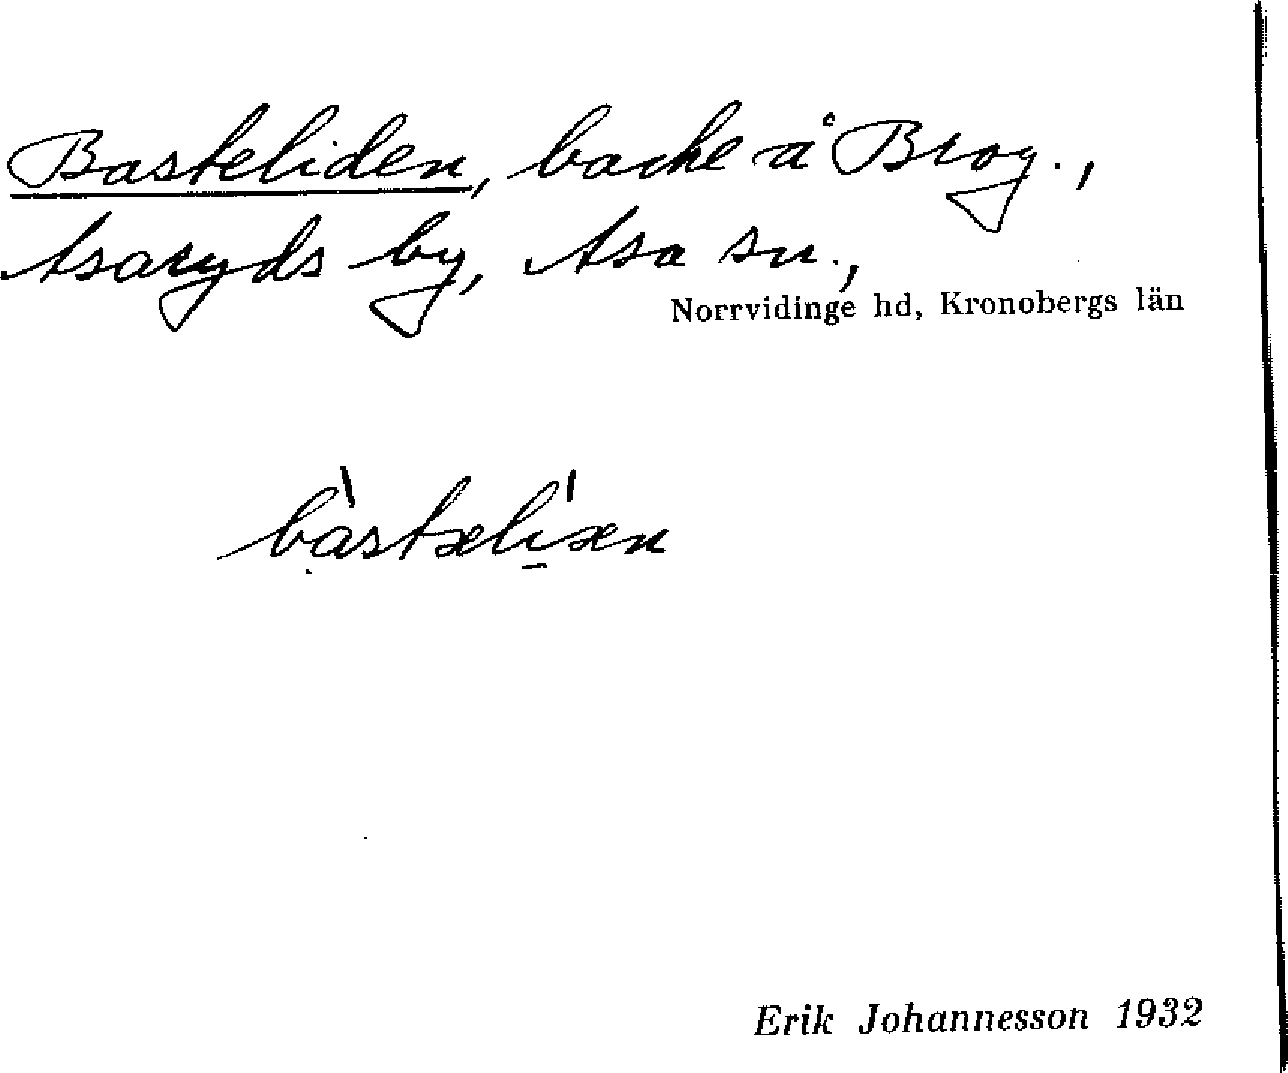 Basteliden, backe å Brog.,
Asaryds by, Asa sn.,
Norrvidinge hd, Kronobergs län
bàstælíæn
Erik Johannesson 1932